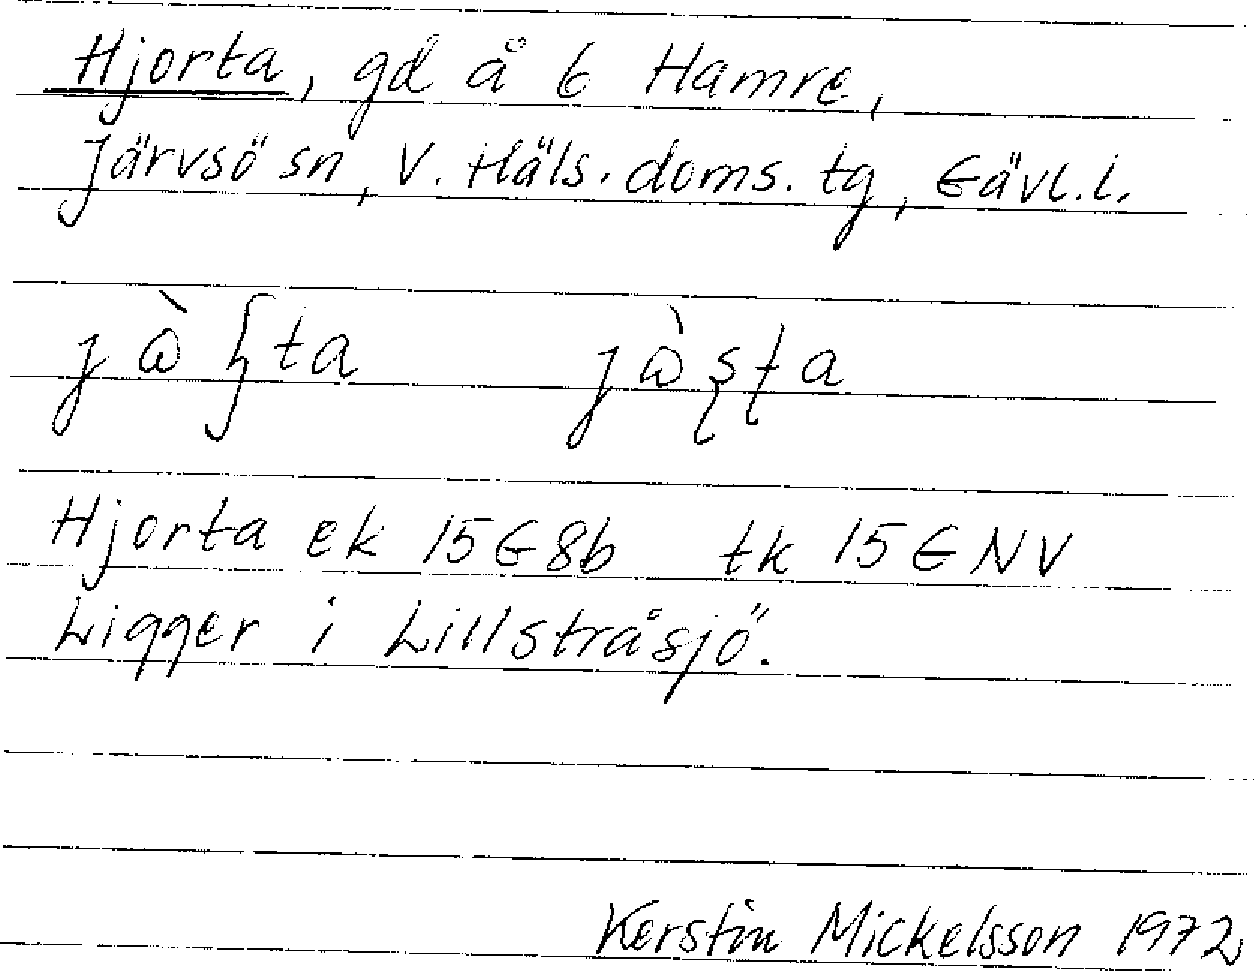 Hjorta, gd å 6 Hamre,
Järvsö sn, V. Häls. doms. tg, Gävl.l.
Hjorta ek 15G8b tk 15GNV
Ligger i Lillstråsjö.
Kerstin Mickelsson 1972